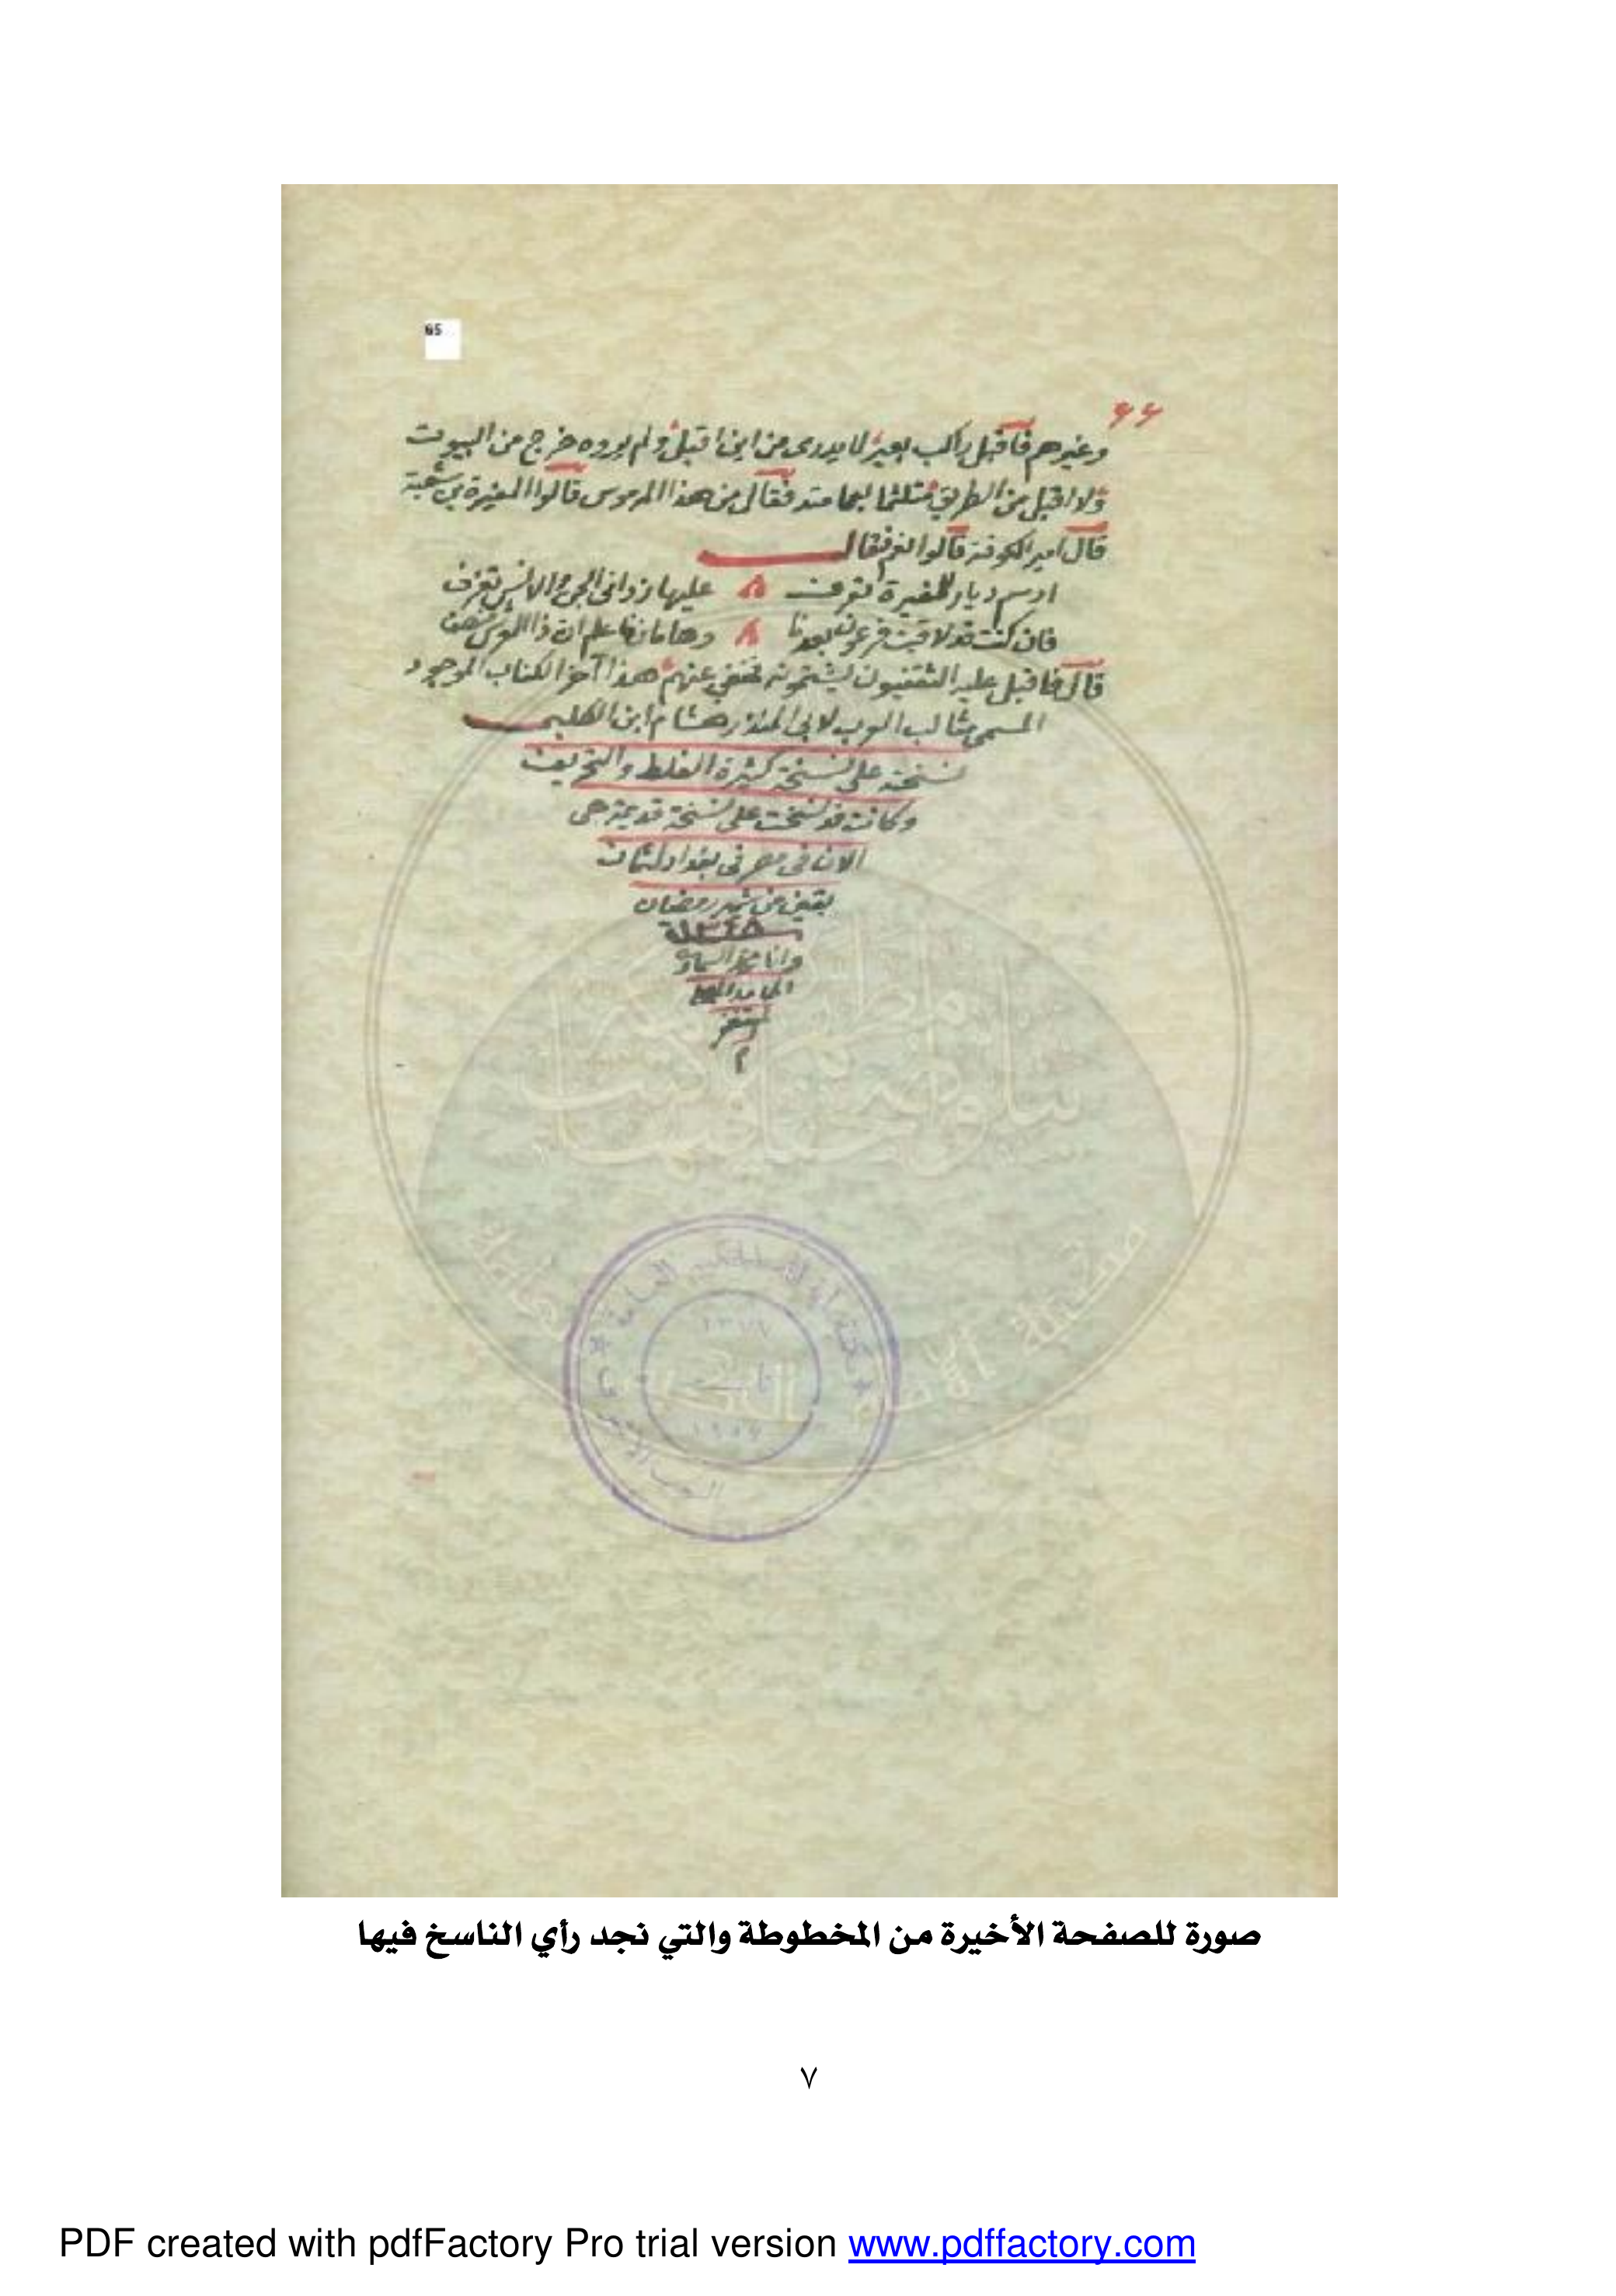 65
٦٦
وغيرهم فأقبل راكب بعير لا يدرى من اين اقبل ولم يروه خرج من البيوت
ولا اقبل من الطريق متلثما بعمامته فقال من هذا المرموس قالوا المغيرة بن شعبة
قال امير الكوفة قالوا نعم فقال
ارسم ديار للمغيرة تعرف عليها زواني الجن والانس تعزف
فان كنت قد لاقيت فرعون بعدنا وهامانا فاعلم ان ذا العرش
قال فاقبل عليه الثقفيون يشتمونه عنهم هذا آخر الكتاب الموجود
المسمى مثالب العرب لابي المنذر هشام ابن الكلبي
نسخته على نسخة كثيرة الغلط والتحريف
وكانت قد نسخت على نسخة قديمة هي
الان في مصر في بغداد لثمان
بقين من شهر رمضان
سنة ١٣٤٨
وانا محمد السماوي
صورة للصفحة الأخيرة من المخطوطة والتي نجد رأي الناسخ فيها
٧
PDF created with pdfFactory Pro trial version www.pdffactory.com